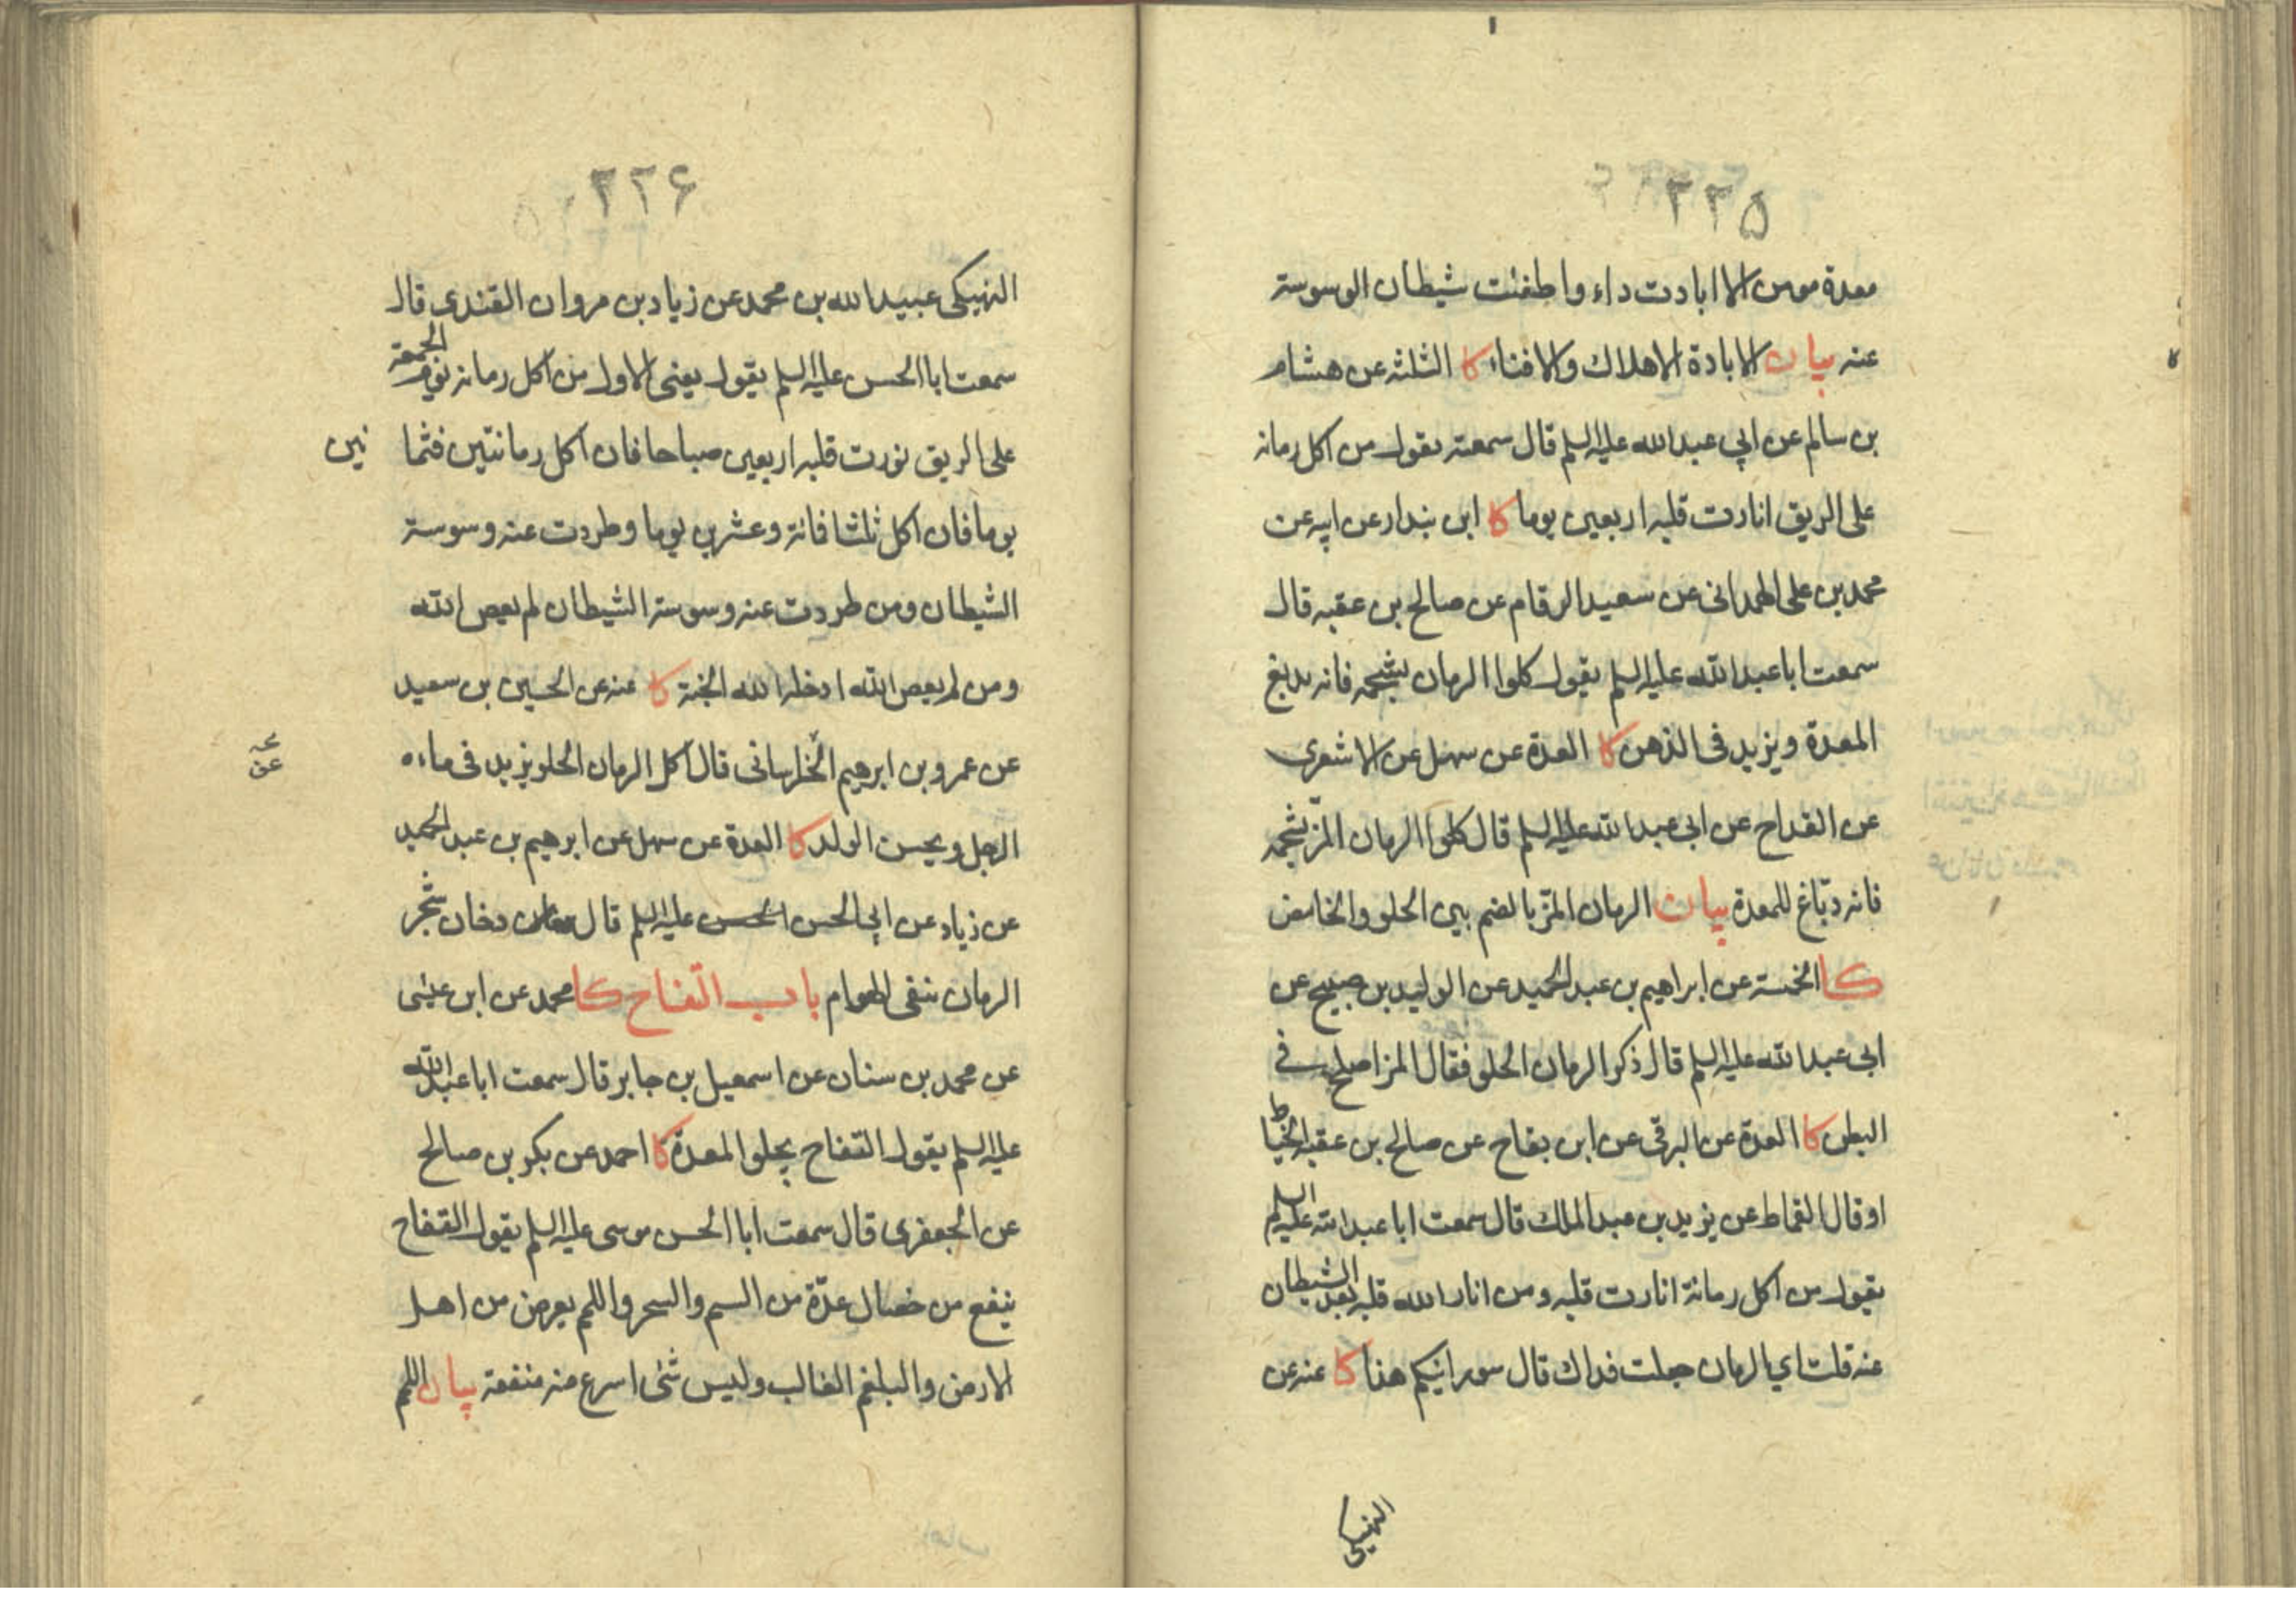 ٢٢٥
معدة مومن الا ابادت داء واطفئت شيطان الوسوسة
عنه بيان الابادة الاهلاك والافناء كا الثلثه عن هشام
بن سالم عن ابي عبد الله عليه السلم قال سمعته يقول من اكل رمانة
على الريق انارت قلبه اربعين يوما كا ابن بندار عن ابيه عن
محمد بن على الهمدانى عن سعيد الرقام عن صالح بن عقبه قال
سمعت ابا عبد الله عليه السلم يقول كلوا الرمان بشحمه فانه يدبغ
المعدة ويزيد فى الذهن كا العدة عن سهل عن الاشعرى
عن القداح عن ابى عبد الله عليه السلم قال كلوا الرمان المزّ بشحمه
فانه دبّاغ للمعدة بيان الرمان المزّ بالضم بين الحلو والحامض
كا الخمسة عن ابراهيم بن عبد الحميد عن الوليد بن صبيح عن
ابى عبد الله عليه السلم قال ذكر الرمان الحلو فقال المز اصلح فى
البطن كا العدة عن البرقى عن ابن بقاح عن صالح بن عقبه الخياط
او قال القماط عن يزيد بن عبد الملك قال سمعت ابا عبد الله عليه السلم
يقول من اكل رمانة انارت قلبه ومن انار الله قلبه بعد الشيطان
عنه قلت اي الرمان جعلت فداك قال سورانيكم هذا كا عنه عن
النهيكى
٢٢۶
النهيكى عبيد الله بن محمد عن زياد بن مروان القندى قال
سمعت ابا الحسن عليه السلم يقول يعنى الاول من اكل رمانه يوم الجمعة
على الريق نورت قلبه اربعين صباحا فان اكل رمانتين فثما نين
يوما فان اكل ثلثا فمائة وعشرين يوما وطردت عنه وسوسة
الشيطان ومن طردت عنه وسوسة الشيطان لم يعص الله
ومن لم يعص الله ادخله الله الجنة كا عنه عن الحسين بن سعيد
عن عمرو بن ابرهيم الخراسانى قال اكل الرمان الحلو يزيد فى ماءه
الرجل ويحسن الولد كا العدة عن سهل عن ابرهيم بن عبد الحميد
عن زياد عن ابي الحسن الحسن عليه السلم قال دخان شجر
الرمان ينفى الهوام باب التفاح كا محمد عن ابن عيسى
عن محمد بن سنان عن اسمعيل بن جابر قال سمعت ابا عبد الله
عليه السلم يقول التفاح يجلو المعدة كا احمد عن بكر بن صالح
عن الجعفرى قال سمعت ابا الحسن موسى عليه السلم يقول التفاح
ينفع من خصال عدّة من السم والسحر واللمم يعرض من اهل
الارض والبلغم الغالب وليس شئ اسرع منه منفعة بيان اللمم